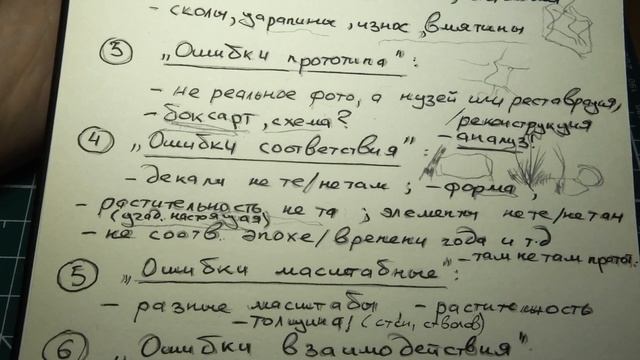 - сколы, царапины, износ, вмятины
3 „Ошибки прототипа":
- не реальное фото, а музей или реставрация,
/реконструкция
- боксарт, схема? - анализ!
4 „Ошибки соответствия":
- декали не те/не там; - форма,
- растительность не та; элементы не те/не там
настоящая)
- не соотв. эпохе/времени года и т.д
- там не там
5 „Ошибки масштабные":
- разные масштабы - растительность
- толщина, (стен, стволов)
6 „Ошибки взаимодействия"